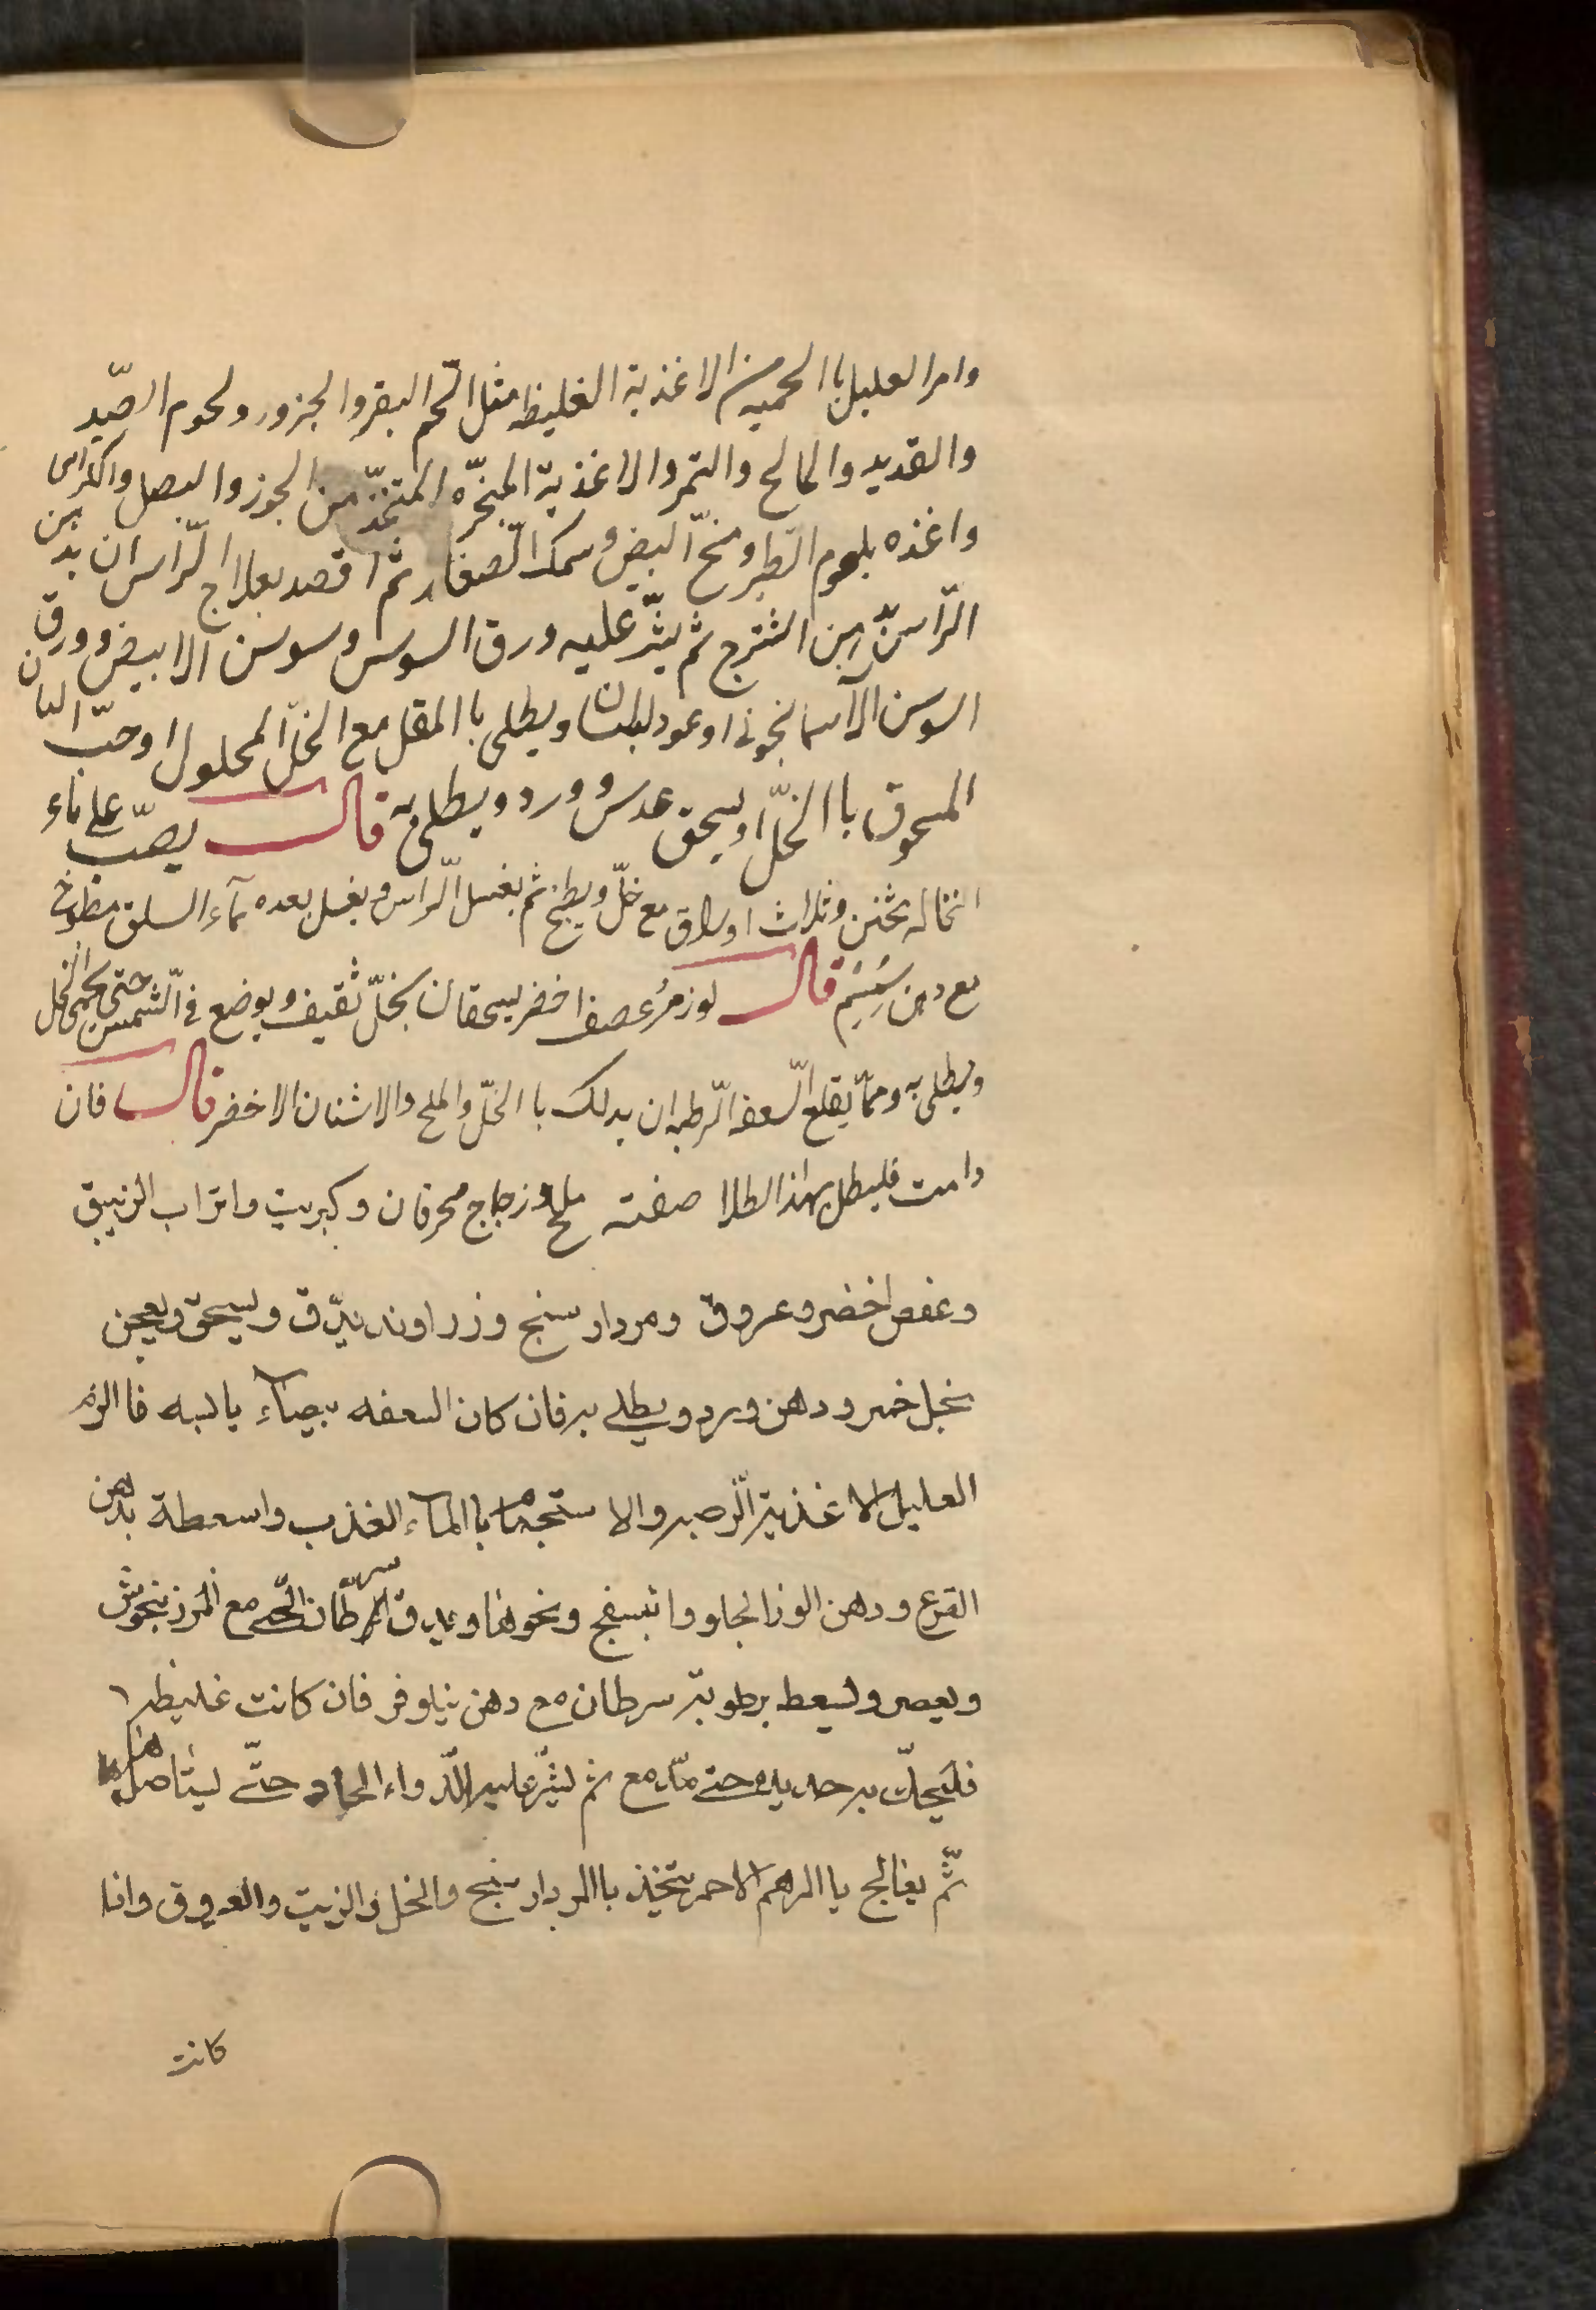 وامر العليل باالحميه من الاغذية الغليظه مثل الحم البقر والجزور ولحوم الصّيد
والقديد والمالح والتمر والاغذية المبخرّه المتخذّ من الجوز والبصل والكراس
واغذه بلحوم الطّير ومخّ البيض وسمك الصّغار ثم اقصد بعلااج الرّاس ان يدهن
الرّاس بدهن الشترج ثم ينثّر عليه ورق السوس وسوسن الابيض وورق
السوسن الآسمانجوني او عود لبلسان ويطلى باالمقل مع الخلّ المحلول او حبّ البان
المسحوق باالخلّ او يسحق عدس وورد ويطلى به قال يصبّ على ماء
النخاله بحثن وثلاث اوراق مع خلّ ويطبخ ثم يغسل الرّاس ويغسل بعده بمآء السلق مطبوخ
مع دهن سِمسِم قال لوز مرُ عصف اخضر يسحقان بخلّ ثقيف ويوضع في الشّمس حتى يحمى الخل
ويطلى به وممّا يقلع السّعفه الرّطبه ان يدلك باالخلّ والملح والاشنان الاخضر قال فان
دامت فليطل بهذا الطلا صفته ملح وزجاج محرقان وكبريت واتراب الزيبق
وعفص اخضر وعروق ومردار سنج وزراوند يدّق ويسحق ويعجن
بخل خمر ودهن ورد ويطلى به فان كان السعفه بيضاء يابسه فاالزم
العليل الاغذية الرّطبه والاستحمام باالماء العذب واسعطة بدهن
القرع ودهن الوز الحلو وابنسفج ونحوها ويدق السرطّان الحّي مع المرزنجوش
ويعصر ويسعط برطوبة سرطان مع دهن نيلوفر فان كانت غليظه
فليحكّ به حديده حتى تدّمع ثم ينثّر عليه الدّواء الحاد حتّى يستاصلها
ثّم يعالج باالمرهم الاحمر يتخيذ باالمردار سنج والخل والزيت والعروق واذا
كانت